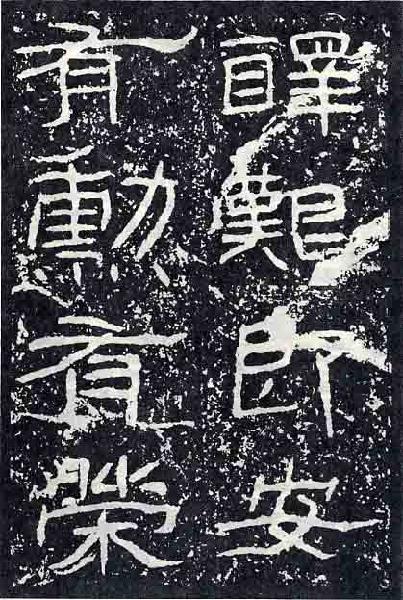 醳艱即安
有勳有榮